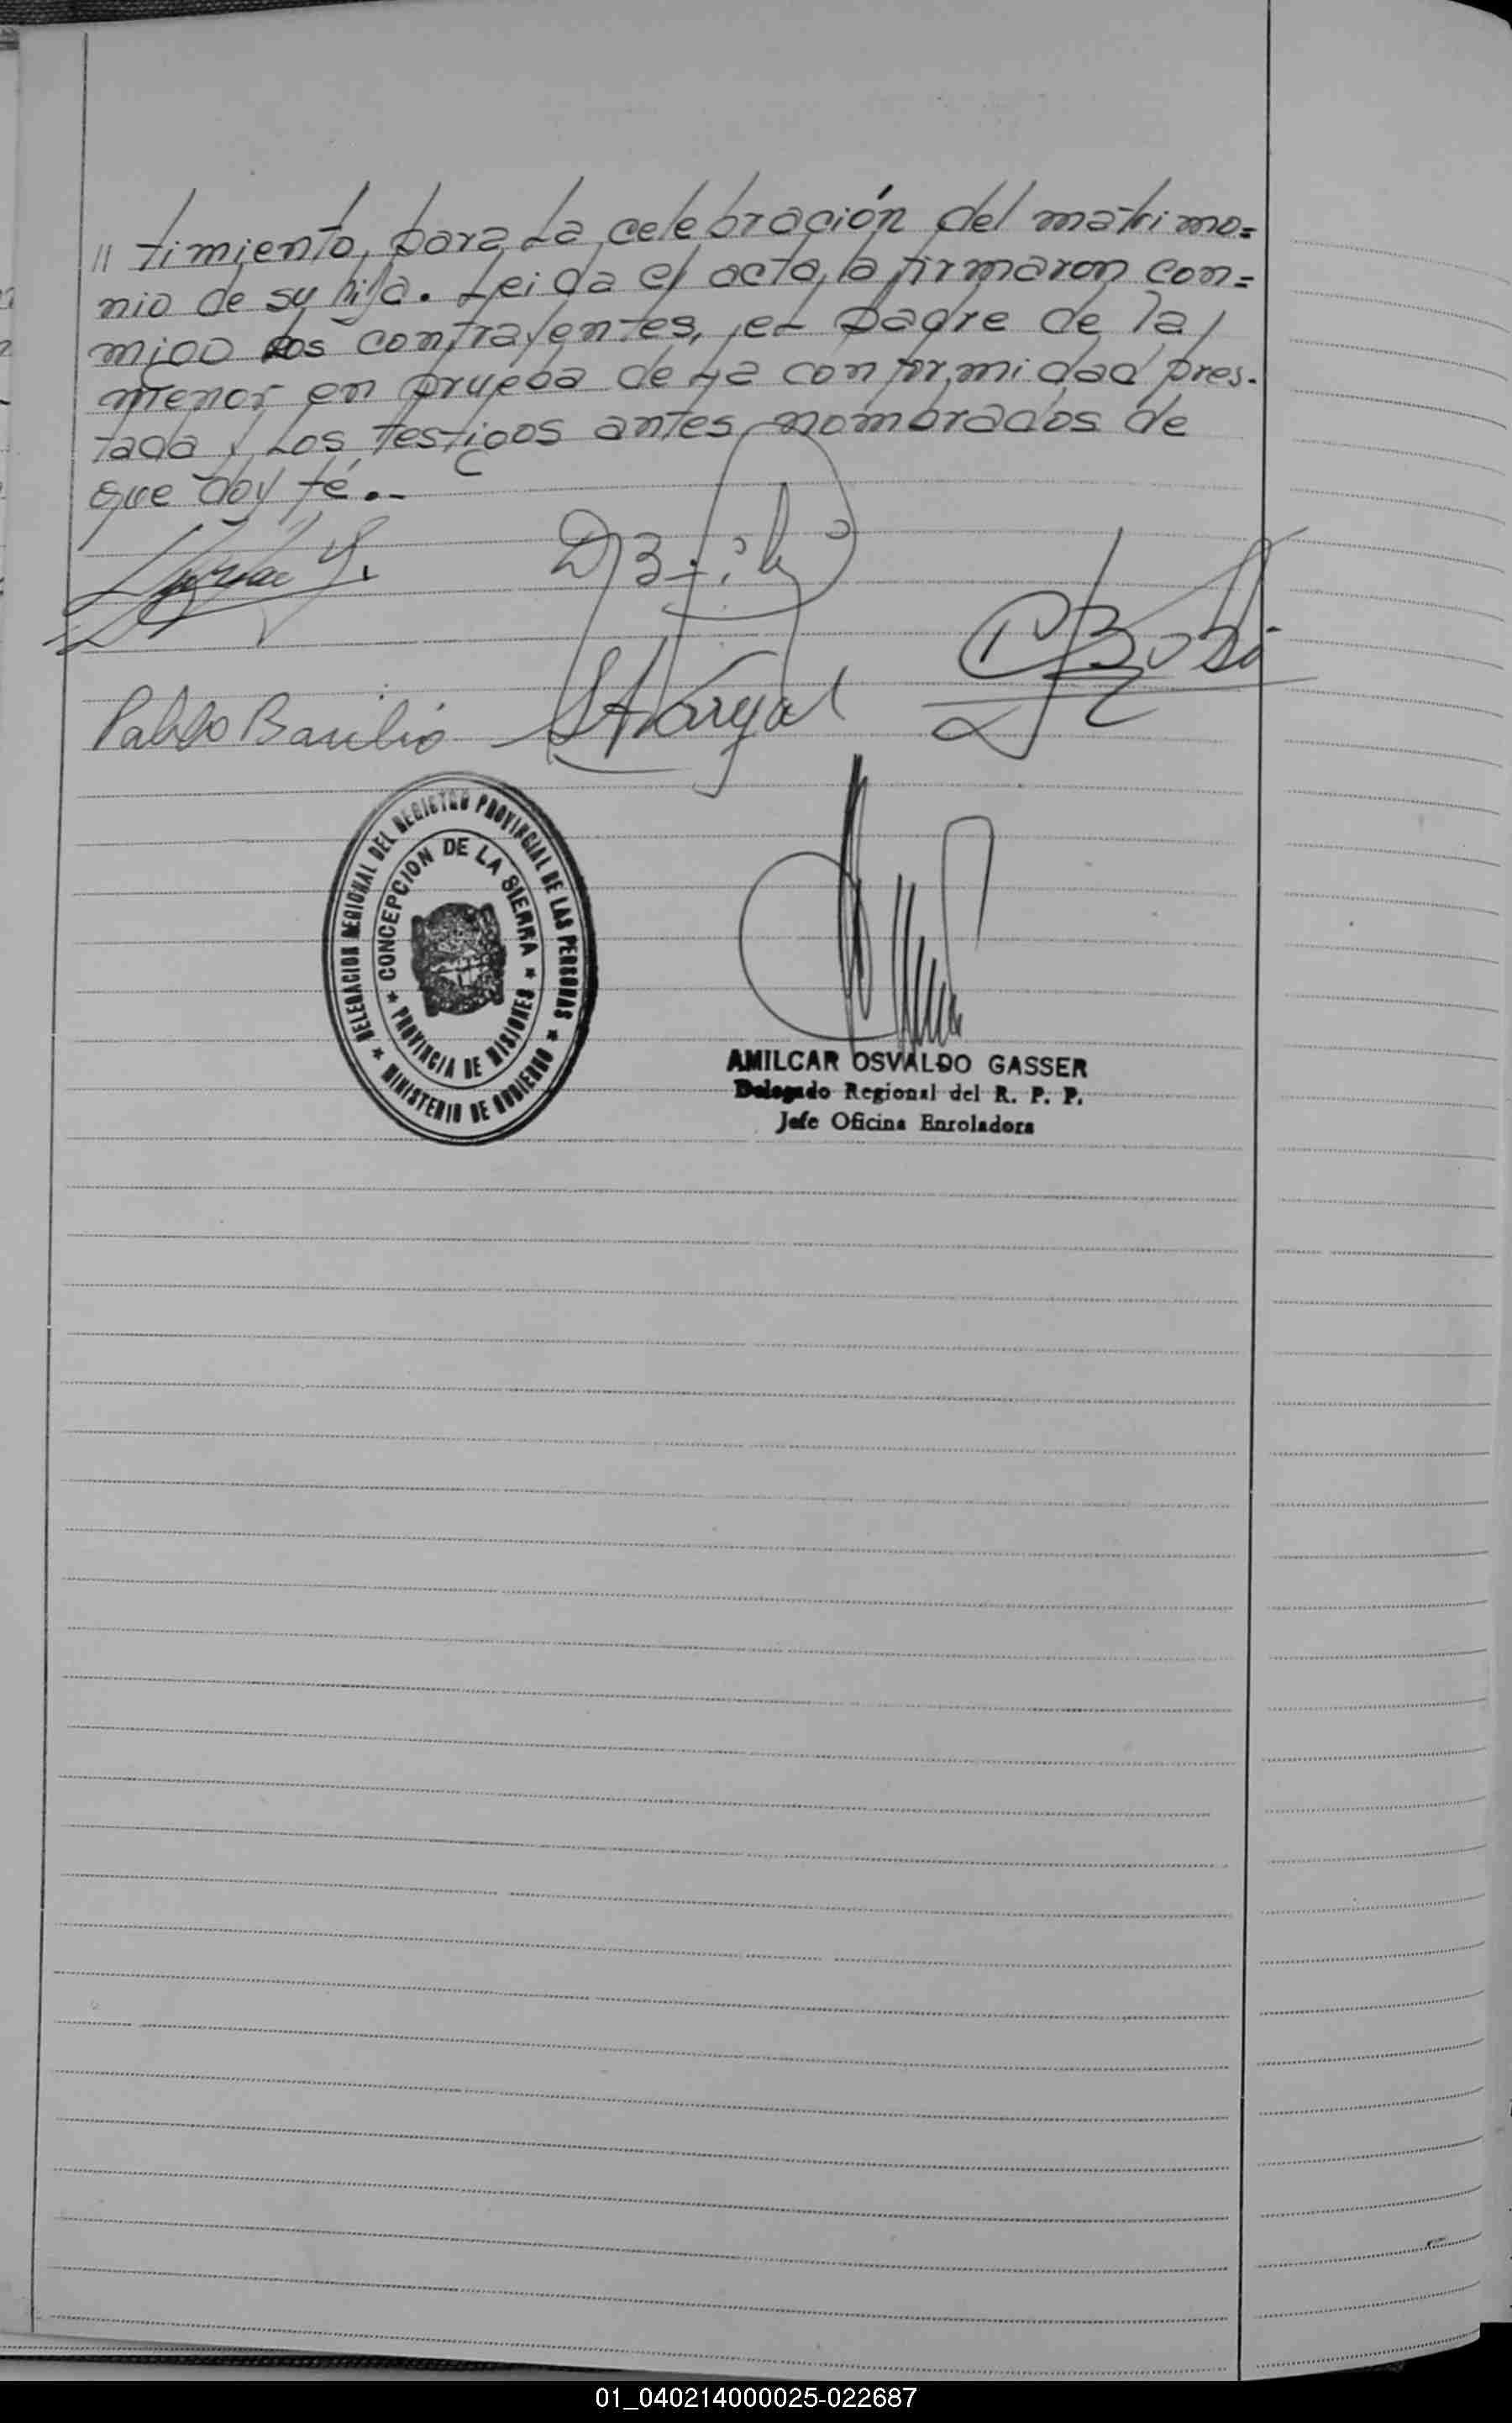 // timiento, para La celebración del matrimo=
nio de su hija. Leida el acta, la firmaron con=
migo Los contrayentes, el padre de la
menor en prueba de la conformidad pres-
tada y Los testigos antes nombrados de
que doy fé.-
Pablo Basilio
DELEGACION REGIONAL DEL REGISTRO PROVINCIAL DE LAS PERSONAS
★ MINISTERIO DE GOBIERNO ★
CONCEPCION DE LA SIERRA
★ PROVINCIA DE MISIONES ★
AMILCAR OSVALDO GASSER
Delegado Regional del R. P. P.
Jefe Oficina Enroladora
01_040214000025-022687